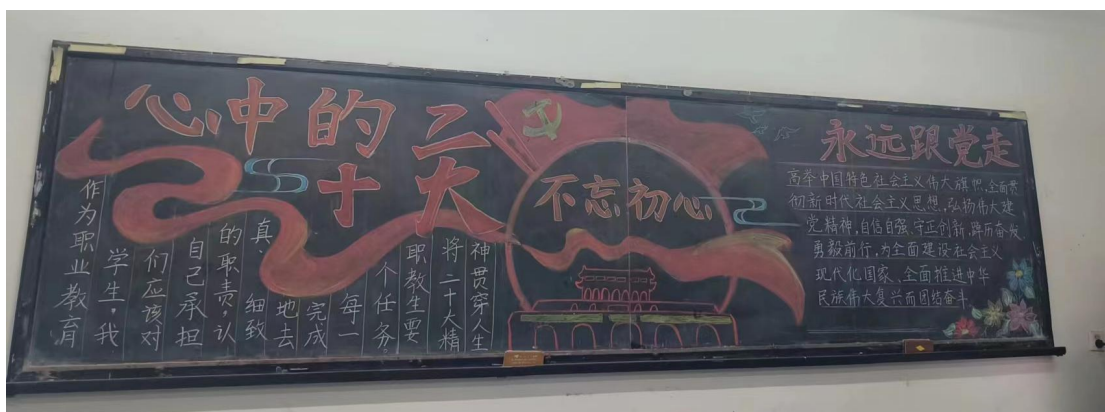 心中的二
十大
作为职业教育
学生,我
们应该对
自己承担
的职责,认
真、细致
地去
完成
每一
个任务。
职教生要
将二十大精
神贯穿人生
不忘初心
永远跟党走
高举中国特色社会主义伟大旗帜,全面贯
彻新时代社会主义思想,弘扬伟大建
党精神,自信自强、守正创新,踔厉奋发、
勇毅前行,为全面建设社会主义
现代化国家、全面推进中华
民族伟大复兴而团结奋斗